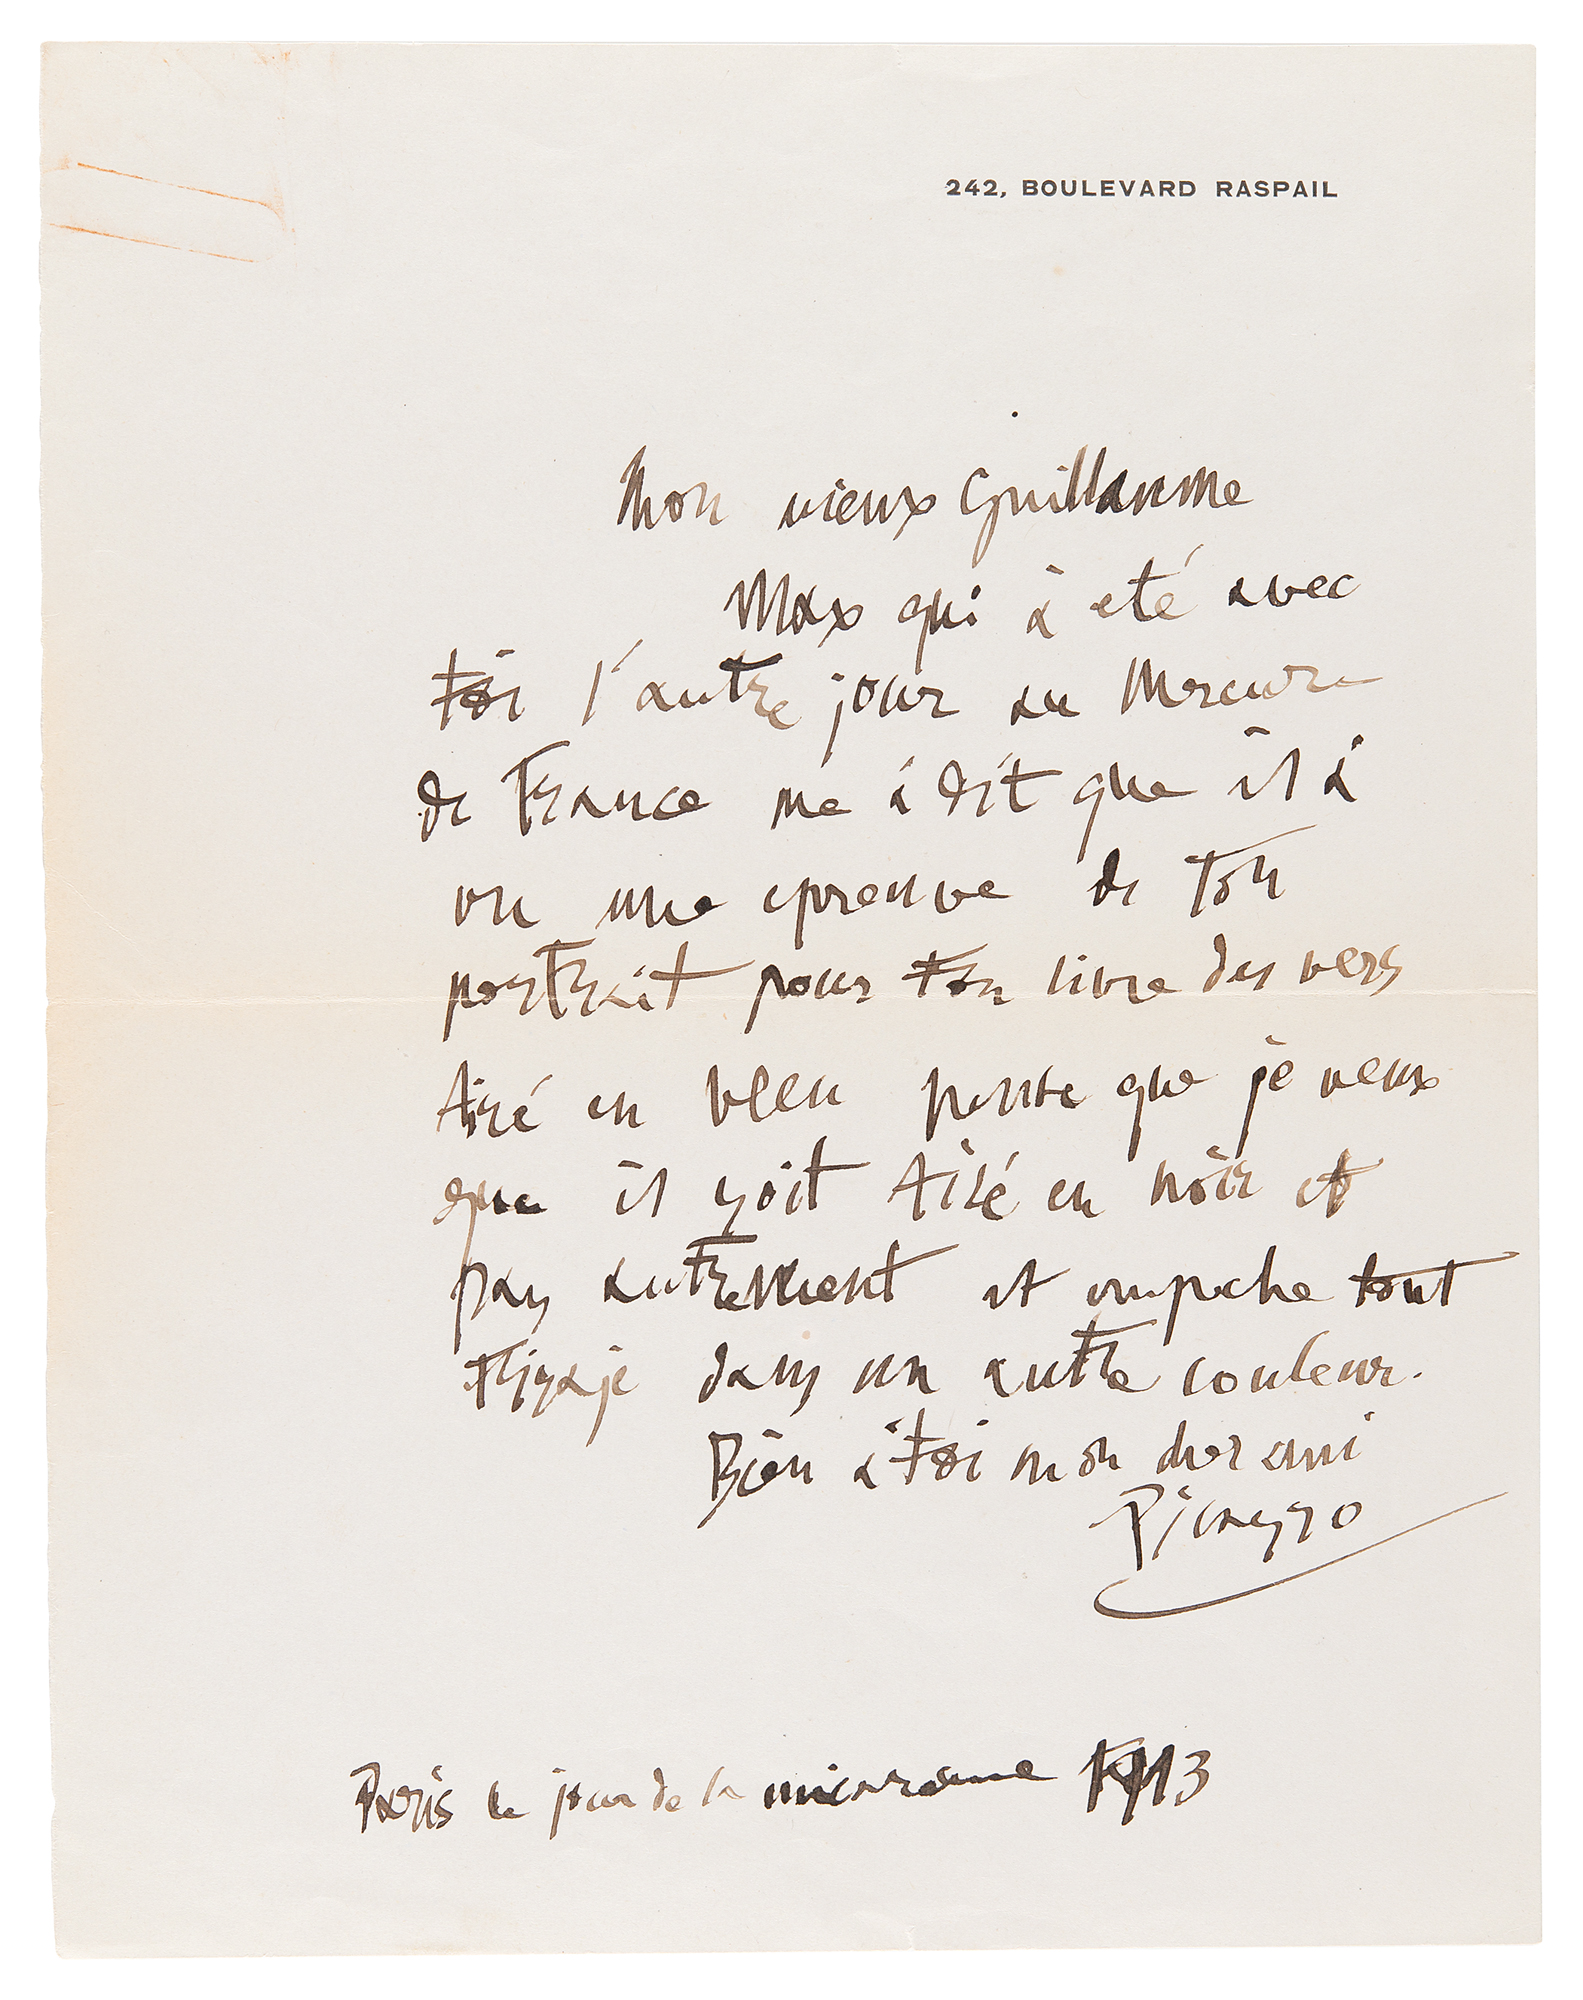 242, BOULEVARD RASPAIL
Mon vieux Guillaume
Max qui à eté avec
toi l'autre jour au Mercure
de France me á dit que il à
vu une epreuve de ton
portrait pour ton livre des vers
tiré en bleu pense que je veux
que il soit tiré en noir et
pas autrement et empeche tout
tiraje dans un autre couleur.
Bien á toi mon cher ami
Picasso
Paris le jour de la micareme 1913